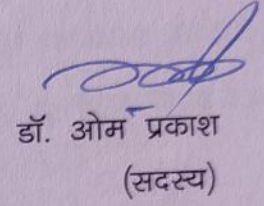 डॉ. ओम प्रकाश
(सदस्य)